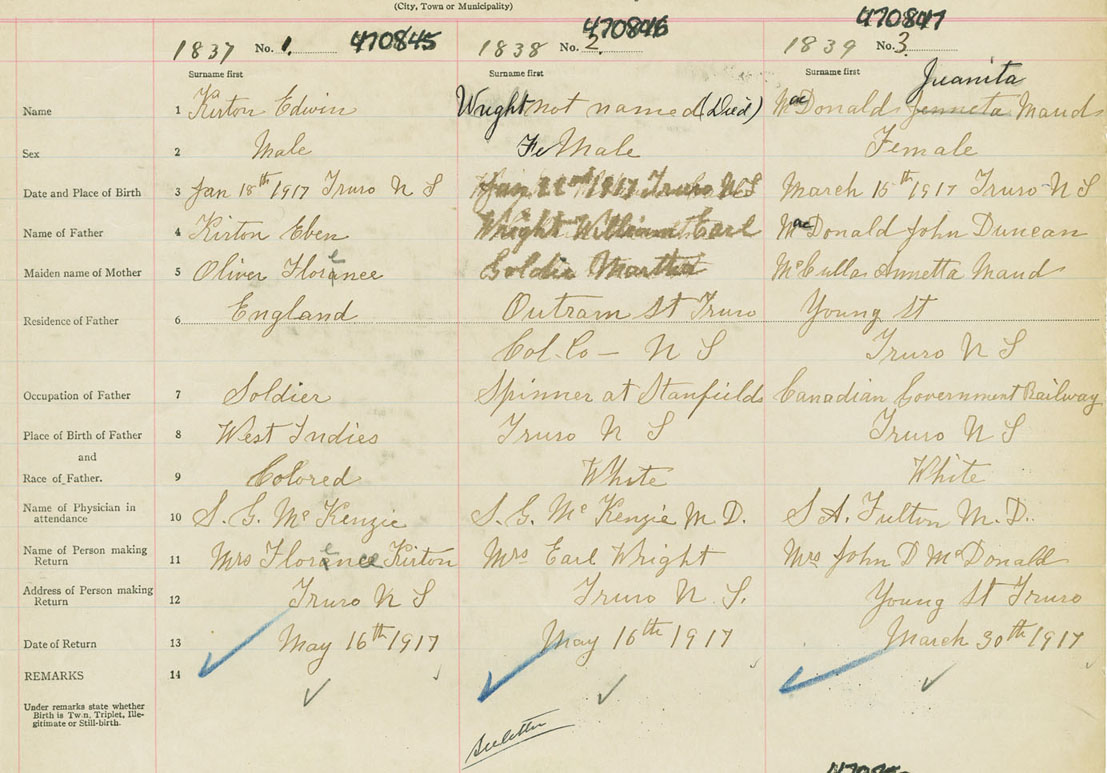 (City, Town or Municipality)
1837 No. 1. 470845 1838 No. 2. 470846 1839 No. 3. 470847
Surname first Surname first Surname first
Juanita
Name 1 Kirton Edwin Wright not named (Died) MacDonald Jenneta Maud
Sex 2 Male FeMale Female
Date and Place of Birth 3 Jan 18th 1917 Truro N S Jan 22nd 1917 Truro N S March 15th 1917 Truro N S
Name of Father 4 Kirton Eben Wright William Earl MacDonald John Duncan
Maiden name of Mother 5 Oliver Florence Goldie Martha Annetta Maud
Residence of Father 6 England Outram St Truro Young St
Col. Co - N S Truro N S
Occupation of Father 7 Soldier Spinner at Stanfields Canadian Government Railway
Place of Birth of Father 8 West Indies Truro N S Truro N S
and
Race of Father. 9 Colored White White
Name of Physician in
attendance 10 S. G. Mc Kenzie S. G. Mc Kenzie M. D. S A. Fulton M. D.
Name of Person making
Return 11 Mrs Florence Kirton Mrs Earl Wright Mrs John D McDonald
Address of Person making
Return 12 Truro N S Truro N. S. Young St Truro
Date of Return 13 May 16th 1917 May 16th 1917 March 30th 1917
REMARKS 14
Under remarks state whether
Birth is Twin, Triplet, Ille-
gitimate or Still-birth.
See letter